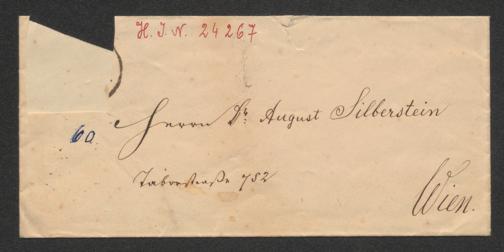 H. I. N. 24267
6a
Herrn Dr. August Silberstein
Taborstraße 752
Wien.